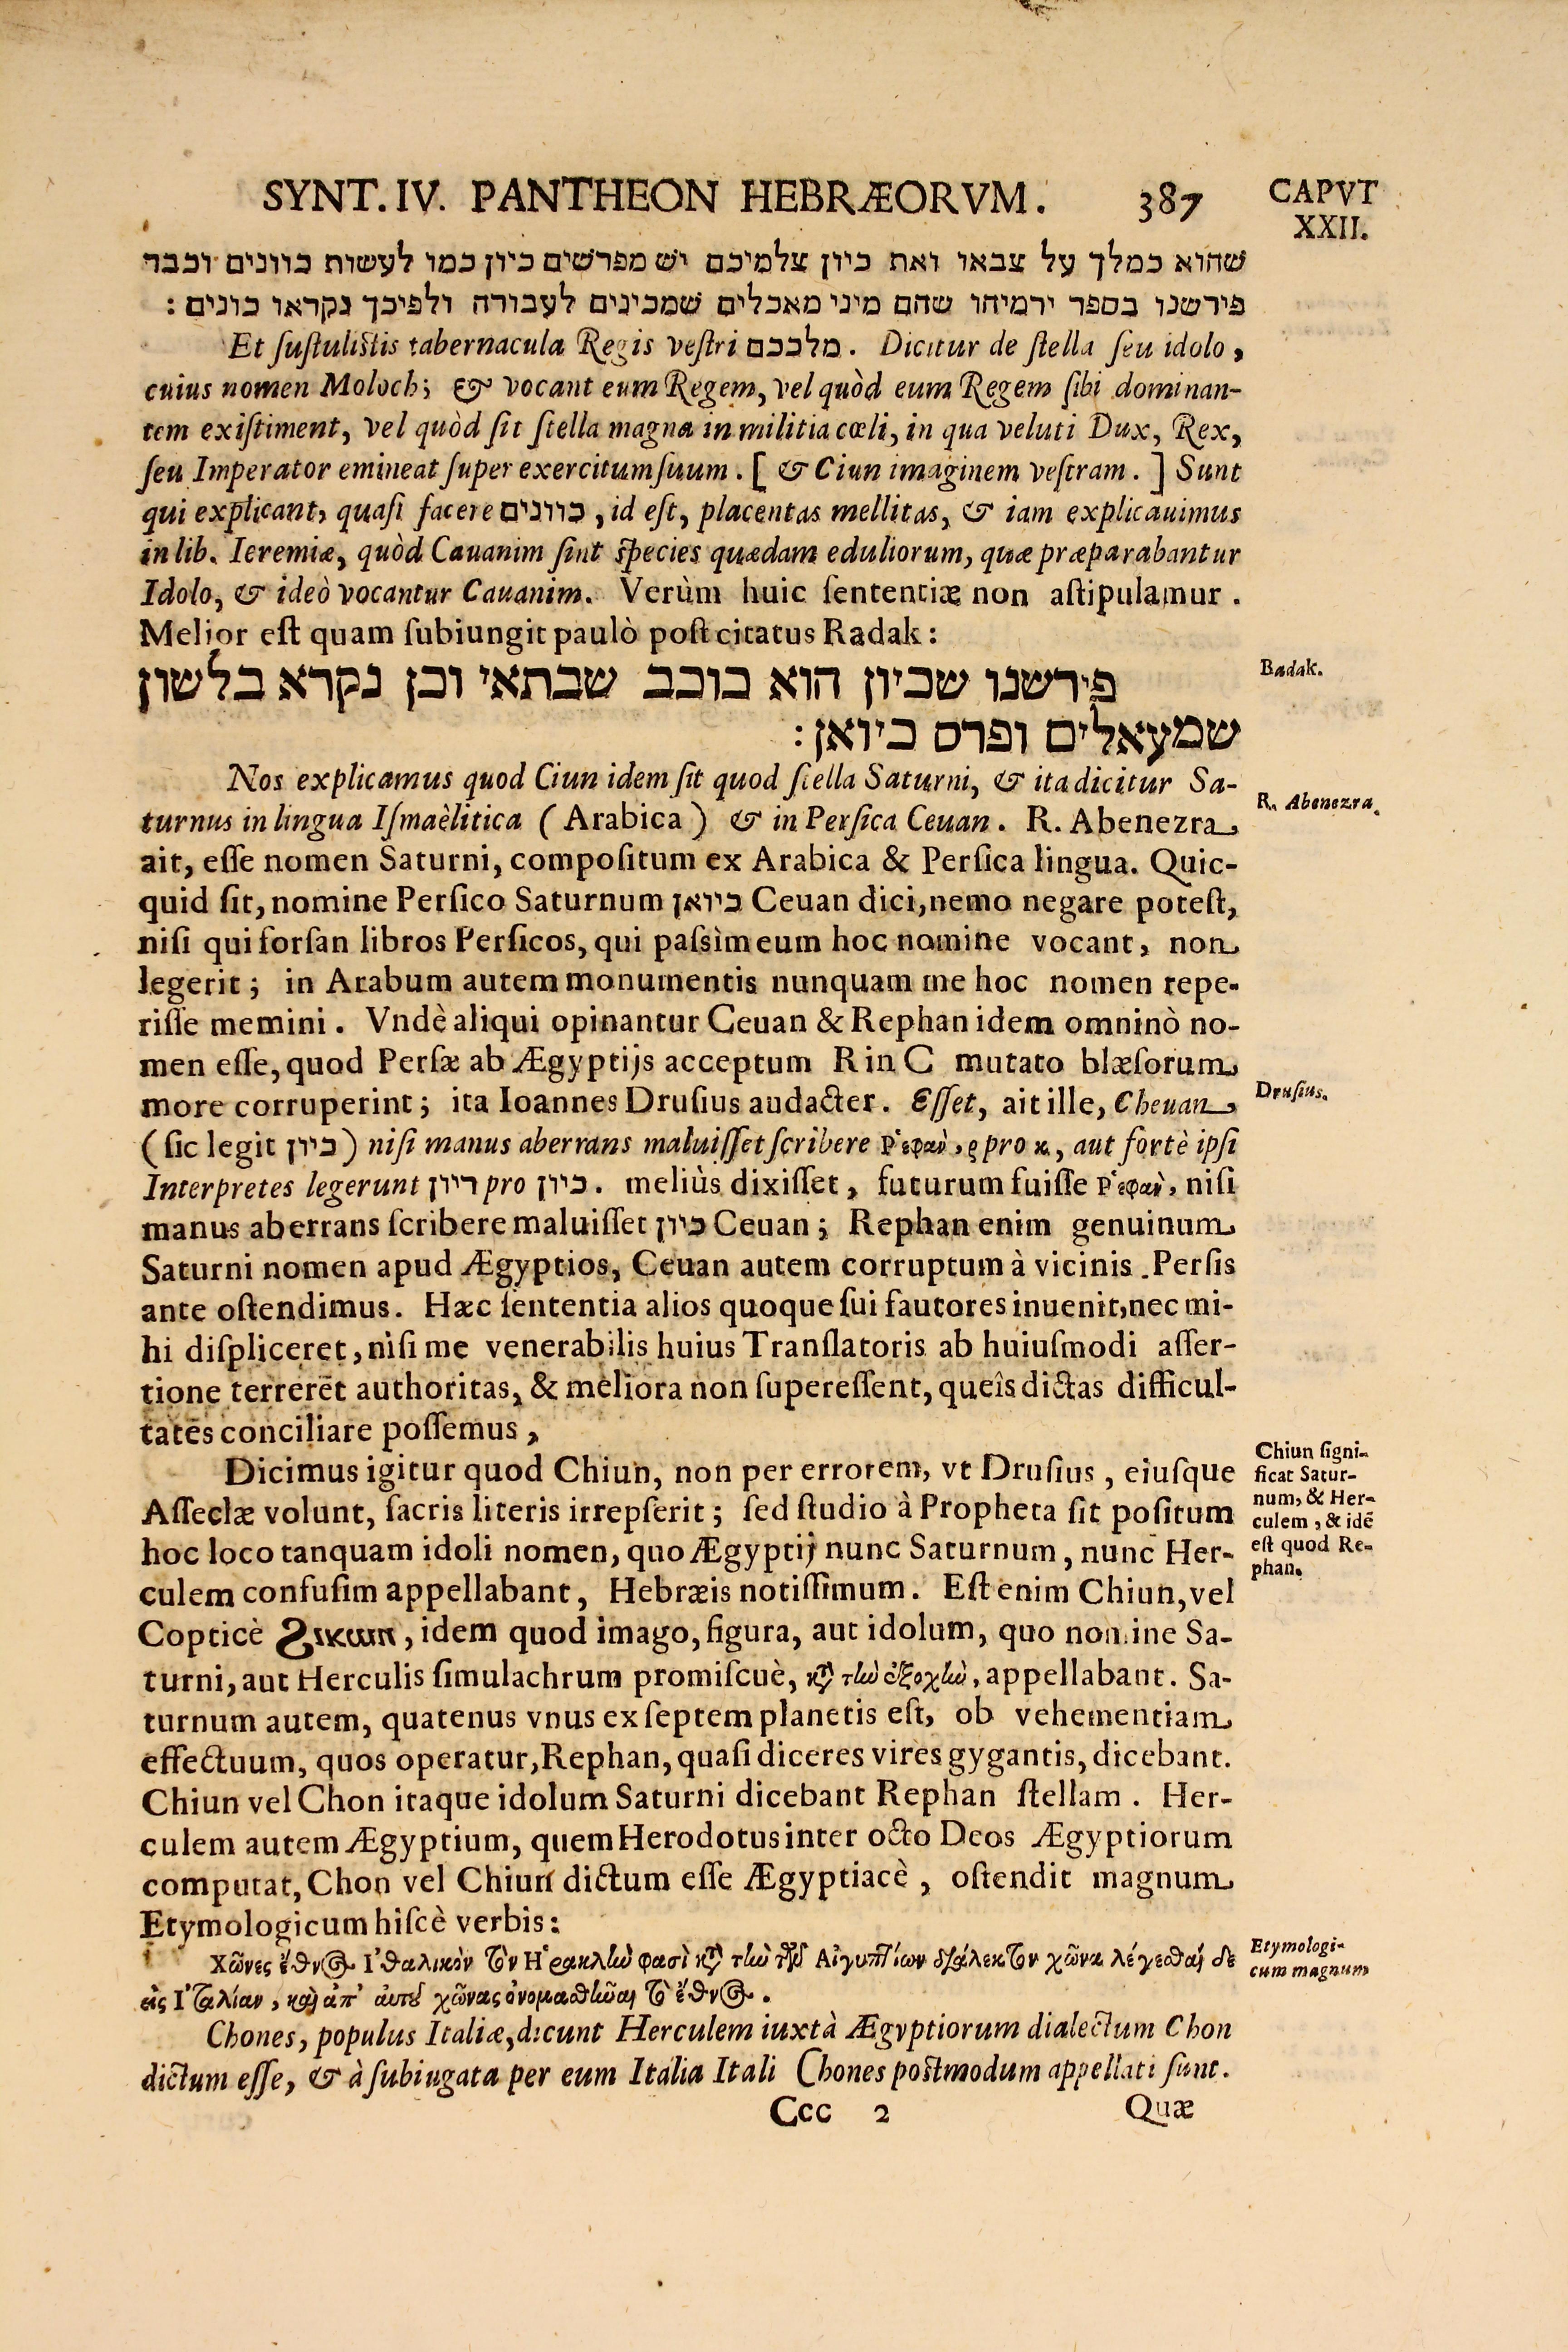 SYNT. IV. PANTHEON HEBRÆORVM. 387
CAPVT
XXII.
שהוא כמלך על צבאו ואת כיון צלמיכם יש מפרשים כיון כמו לעשות כוונים וכבר
פירשנו בספר ירמיהו שהם מיני מאכלים שמכינים לעבורה ולפיכך נקראו כונים :
Et ſuſtulistis tabernacula Regis veſtri מלככם . Dicitur de ſtella ſeu idolo ,
cuius nomen Moloch; & vocant eum Regem, vel quòd eum Regem ſibi dominan-
tem exiſtiment, vel quòd ſit ſtella magna in militia cœli, in qua veluti Dux, Rex,
ſeu Imperator emineat ſuper exercitum ſuum . [ & Ciun imaginem veſtram . ] Sunt
qui explicant, quaſi facere כוונים , id eſt, placentas mellitas, & iam explicauimus
in lib. Ieremiæ, quòd Cauanim ſint species quædam eduliorum, quæ præparabantur
Idolo, & ideò vocantur Cauanim. Verùm huic ſententiæ non aſtipulamur .
Melior eſt quam ſubiungit paulò poſt citatus Radak :
פירשנו שכיון הוא כוכב שבתאי וכן נקרא בלשון
Badak.
שמעאלים ופרס כיואן :
Nos explicamus quod Ciun idem ſit quod ſtella Saturni, & ita dicitur Sa-
turnus in lingua Iſmaèlitica ( Arabica ) & in Perſica Ceuan . R. Abenezra
R. Abenezra.
ait, eſſe nomen Saturni, compoſitum ex Arabica & Perſica lingua. Quic-
quid ſit, nomine Perſico Saturnum כיואן Ceuan dici, nemo negare poteſt,
niſi qui forſan libros Perſicos, qui paſsìm eum hoc nomine vocant, non
legerit ; in Arabum autem monumentis nunquam me hoc nomen repe-
riſſe memini . Vndè aliqui opinantur Ceuan & Rephan idem omninò no-
men eſſe, quod Perſæ ab Ægyptijs acceptum R in C mutato blæſorum
more corruperint ; ita Ioannes Druſius audacter. Eſſet, ait ille, Cheuan
Druſius.
( ſic legit כיון ) niſi manus aberrans maluiſſet ſcribere Ρ῾εφαν̀, ρ pro κ, aut fortè ipſi
Interpretes legerunt ריון pro כיון . meliùs dixiſſet , futurum fuiſſe Ρ῾εφαν̀, niſi
manus aberrans ſcribere maluiſſet כיון Ceuan ; Rephan enim genuinum
Saturni nomen apud Ægyptios, Ceuan autem corruptum à vicinis Perſis
ante oſtendimus. Hæc ſententia alios quoque ſui fautores inuenit, nec mi-
hi diſpliceret, niſi me venerabilis huius Tranſlatoris ab huiuſmodi aſſer-
tione terrerēt authoritas, & meliora non ſupereſſent, queîs dictas difficul-
tates conciliare poſſemus ,
Dicimus igitur quod Chiun, non per errorem, vt Druſius , eiuſque
Aſſeclæ volunt, ſacris literis irrepſerit ; ſed ſtudio à Propheta ſit poſitum
hoc loco tanquam idoli nomen, quo Ægyptij nunc Saturnum , nunc Her-
culem confuſim appellabant, Hebræis notiſſimum. Eſt enim Chiun, vel
Chiun ſigni-
ficat Satur-
num, & Her-
culem , & idē
eſt quod Re-
phan.
Copticè Ϩικωπ , idem quod imago, figura, aut idolum, quo nomine Sa-
turni, aut Herculis ſimulachrum promiſcuè, κτ̀ τὼ ἐξοχὼ, appellabant. Sa-
turnum autem, quatenus vnus ex ſeptem planetis eſt, ob vehementiam
effectuum, quos operatur, Rephan, quaſi diceres vires gygantis, dicebant.
Chiun vel Chon itaque idolum Saturni dicebant Rephan ſtellam . Her-
culem autem Ægyptium, quem Herodotus inter octo Deos Ægyptiorum
computat, Chon vel Chiun dictum eſſe Ægyptiacè , oſtendit magnum
Etymologicum hiſcè verbis :
Χῶνες ἔθνος Ι᾿θαλικὸν τὸν Η῾ρακλὼ φασὶ κτ̀ τὼ τῶν Αἰγυπτίων διάλεκτον χῶνα λέγεσθαι δὲ
εἰς Ι᾿ταλίαν , καὶ ἀπ᾿ αὐτοῦ χῶνας ὀνομασθῶαι τὸ ἔθνος .
Etymologi-
cum magnum
Chones, populus Italiæ, dicunt Herculem iuxtà Ægyptiorum dialectum Chon
dictum eſſe, & à ſubiugata per eum Italia Itali Chones postmodum appellati ſunt.
Ccc 2 Quæ